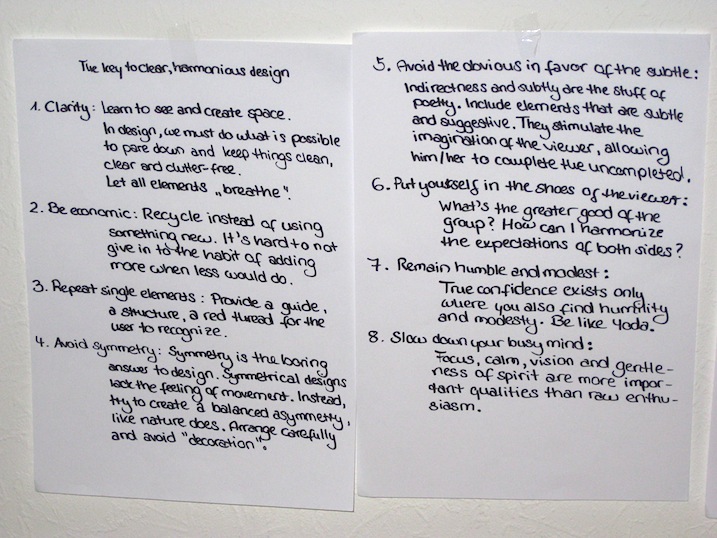 The key to clear, harmonious design
1. Clarity: Learn to see and create space.
In design, we must do what is possible
to pare down and keep things clean,
clear and clutter-free.
Let all elements „breathe".
2. Be economic: Recycle instead of using
something new. It's hard to not
give in to the habit of adding
more when less would do.
3. Repeat single elements: Provide a guide,
a structure, a red thread for the
user to recognize.
4. Avoid symmetry: Symmetry is the boring
answer to design. Symmetrical designs
lack the feeling of movement. Instead,
try to create a balanced asymmetry,
like nature does. Arrange carefully
and avoid "decoration".
5. Avoid the obvious in favor of the subtle:
Indirectness and subtly are the stuff of
poetry. Include elements that are subtle
and suggestive. They stimulate the
imagination of the viewer, allowing
him/her to complete the uncompleted.
6. Put yourself in the shoes of the viewer:
What's the greater good of the
group? How can I harmonize
the expectations of both sides?
7. Remain humble and modest:
True confidence exists only
where you also find humility
and modesty. Be like Yoda.
8. Slow down your busy mind:
Focus, calm, vision and gentle-
ness of spirit are more impor-
tant qualities than raw enthu-
siasm.